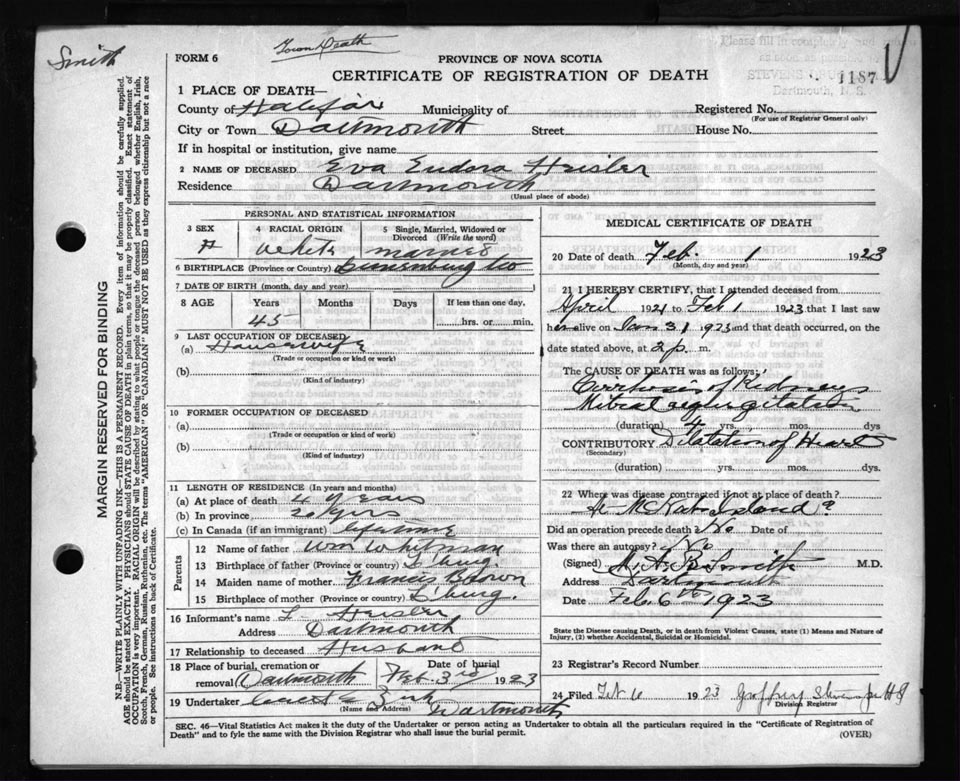 Smith
Town Death
FORM 6
PROVINCE OF NOVA SCOTIA
CERTIFICATE OF REGISTRATION OF DEATH
1187
Please fill in completely and
as soon as possible to
STEVENS
Dartmouth, N. S.
1 PLACE OF DEATH—
County of Halifax Municipality of Registered No.
(For use of Registrar General only)
City or Town Dartmouth Street House No.
If in hospital or institution, give name
2 NAME OF DECEASED Eva Eudora Heisler
Residence Dartmouth
(Usual place of abode)
PERSONAL AND STATISTICAL INFORMATION
3 SEX 4 RACIAL ORIGIN 5 Single, Married, Widowed or Divorced (Write the word)
F White married
6 BIRTHPLACE (Province or Country) Lunenburg Co
7 DATE OF BIRTH (month, day and year)
8 AGE Years Months Days If less than one day,
45 hrs. or min.
9 LAST OCCUPATION OF DECEASED
(a) Housewife
(Trade or occupation or kind or work)
(b)
(Kind of industry)
10 FORMER OCCUPATION OF DECEASED
(a)
(Trade or occupation or kind or work)
(b)
(Kind of industry)
11 LENGTH OF RESIDENCE (In years and months)
(a) At place of death 4 years
(b) In province 20 yrs
(c) In Canada (if an immigrant) lifetime
Parents
12 Name of father Wm Whitman
13 Birthplace of father (Province or Country) L'burg.
14 Maiden name of mother Francis Brown
15 Birthplace of mother (Province or Country) L'burg.
16 Informant's name L Heisler
Address Dartmouth
17 Relationship to deceased Husband
18 Place of burial, cremation or removal Dartmouth Date of burial Feb. 3rd 1923
19 Undertaker
(Name and Address) Dartmouth
MEDICAL CERTIFICATE OF DEATH
20 Date of death Feb. 1 1923
(Month, day and year)
21 I HEREBY CERTIFY, that I attended deceased from
April 1921 to Feb 1 1923 that I last saw
her alive on Jan 31 1923 and that death occurred, on the
date stated above, at 2 p. m.
The CAUSE OF DEATH was as follows:
Cirrhosis of Kidneys
Mitral regurgitation
(duration) 4 yrs. mos. dys
CONTRIBUTORY Dilatation of Heart
(Secondary)
(duration) yrs. mos. dys.
22 Where was disease contracted if not at place of death?
McNabs Island?
Did an operation precede death? No Date of
Was there an autopsy? No
(Signed) Smith M.D.
Address Dartmouth
Date Feb. 6th 1923
State the Disease causing Death, or in death from Violent Causes, state (1) Means and Nature of
Injury, (2) whether Accidental, Suicidal or Homicidal.
23 Registrar's Record Number
24 Filed Feb 6 1923
Division Registrar
SEC. 46—Vital Statistics Act makes it the duty of the Undertaker or person acting as Undertaker to obtain all the particulars required in the "Certificate of Registration of
Death" and to fyle the same with the Division Registrar who shall issue the burial permit.
(OVER)
MARGIN RESERVED FOR BINDING
N.B.—WRITE PLAINLY WITH UNFADING INK—THIS IS A PERMANENT RECORD. Every item of information should be carefully supplied.
AGE should be stated EXACTLY. PHYSICIANS should STATE CAUSE OF DEATH in plain terms, so that it may be properly classified. Exact statement of
OCCUPATION is very important. RACIAL ORIGIN will be described by stating to what people or tongue the deceased person belonged whether English, Irish,
Scotch, French, German, Russian, Ruthenian, etc. The terms "AMERICAN" or "CANADIAN" MUST NOT BE USED as they express citizenship but not a race
or people. See instructions on back of Certificate.